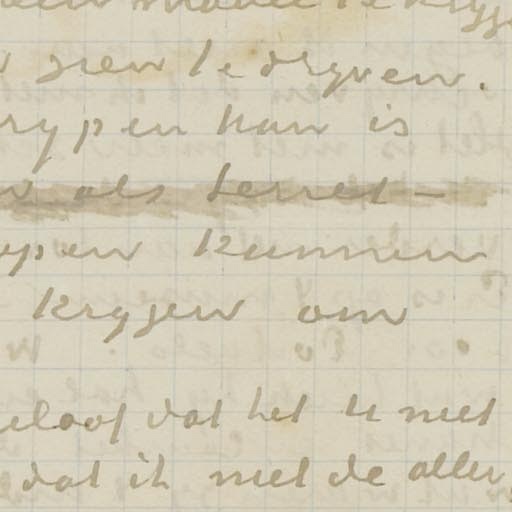 te krygen
zien te dryven.
rypen kan is
als terret-
ypen kunnen
krygen om
geloof dat het U niet
dat ik niet de aller